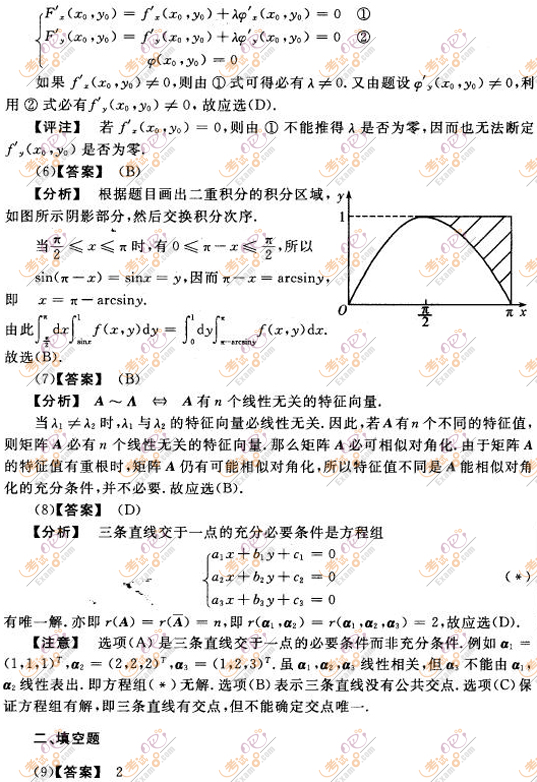 F′ₓ(x₀,y₀) = f′ₓ(x₀,y₀)+λφ′ₓ(x₀,y₀) = 0 ①
F′ᵧ(x₀,y₀) = f′ᵧ(x₀,y₀)+λφ′ᵧ(x₀,y₀) = 0 ②
φ(x₀,y₀) = 0
如果 f′ₓ(x₀,y₀) ≠ 0,则由①式可得必有 λ ≠ 0. 又由题设 φ′ᵧ(x₀,y₀) ≠ 0,利
用②式必有 f′ᵧ(x₀,y₀) ≠ 0,故应选(D).
【评注】 若 f′ₓ(x₀,y₀) = 0,则由①不能推得 λ 是否为零,因而也无法断定
f′ᵧ(x₀,y₀) 是否为零.
(6)【答案】 (B)
【分析】 根据题目画出二重积分的积分区域,
如图所示阴影部分,然后交换积分次序.
当 π/2 ≤ x ≤ π 时,有 0 ≤ π−x ≤ π/2,所以
sin(π−x) = sinx = y,因而 π−x = arcsiny,
即 x = π−arcsiny.
由此∫_{π/2}^{π} dx∫_{sinx}^{1} f(x,y)dy = ∫_{0}^{1} dy∫_{π−arcsiny}^{π} f(x,y)dx.
故选(B).
y
1
O
π/2
π x
(7)【答案】 (B)
【分析】 A ~ Λ ⇔ A 有 n 个线性无关的特征向量.
当 λ₁ ≠ λ₂ 时,λ₁ 与 λ₂ 的特征向量必线性无关. 因此,若 A 有 n 个不同的特征值,
则矩阵 A 必有 n 个线性无关的特征向量. 那么矩阵 A 必可相似对角化. 由于矩阵 A
的特征值有重根时,矩阵 A 仍有可能相似对角化,所以特征值不同是 A 能相似对角
化的充分条件,并不必要. 故应选(B).
(8)【答案】 (D)
【分析】 三条直线交于一点的充分必要条件是方程组
a₁x+b₁y+c₁ = 0
a₂x+b₂y+c₂ = 0 (*)
a₃x+b₃y+c₃ = 0
有唯一解. 亦即 r(A) = r(Ā) = n,即 r(α₁,α₂) = r(α₁,α₂,α₃) = 2,故应选(D).
【注意】 选项(A)是三条直线交于一点的必要条件而非充分条件. 例如 α₁ =
(1,1,1)ᵀ,α₂ = (2,2,2)ᵀ,α₃ = (1,2,3)ᵀ. 虽 α₁,α₂,α₃ 线性相关,但 α₃ 不能由 α₁,
α₂ 线性表出. 即方程组(*)无解. 选项(B)表示三条直线没有公共交点. 选项(C)保
证方程组有解,即三条直线有交点,但不能确定交点唯一.
二、填空题
(9)【答案】 2